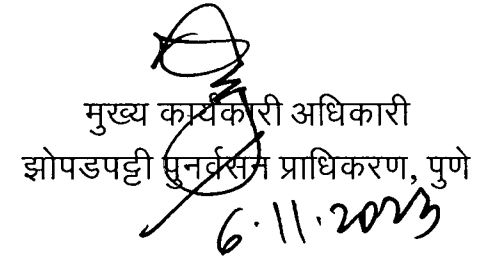 मुख्य कार्यकारी अधिकारी
झोपडपट्टी पुनर्वसन प्राधिकरण, पुणे
6.11.2023